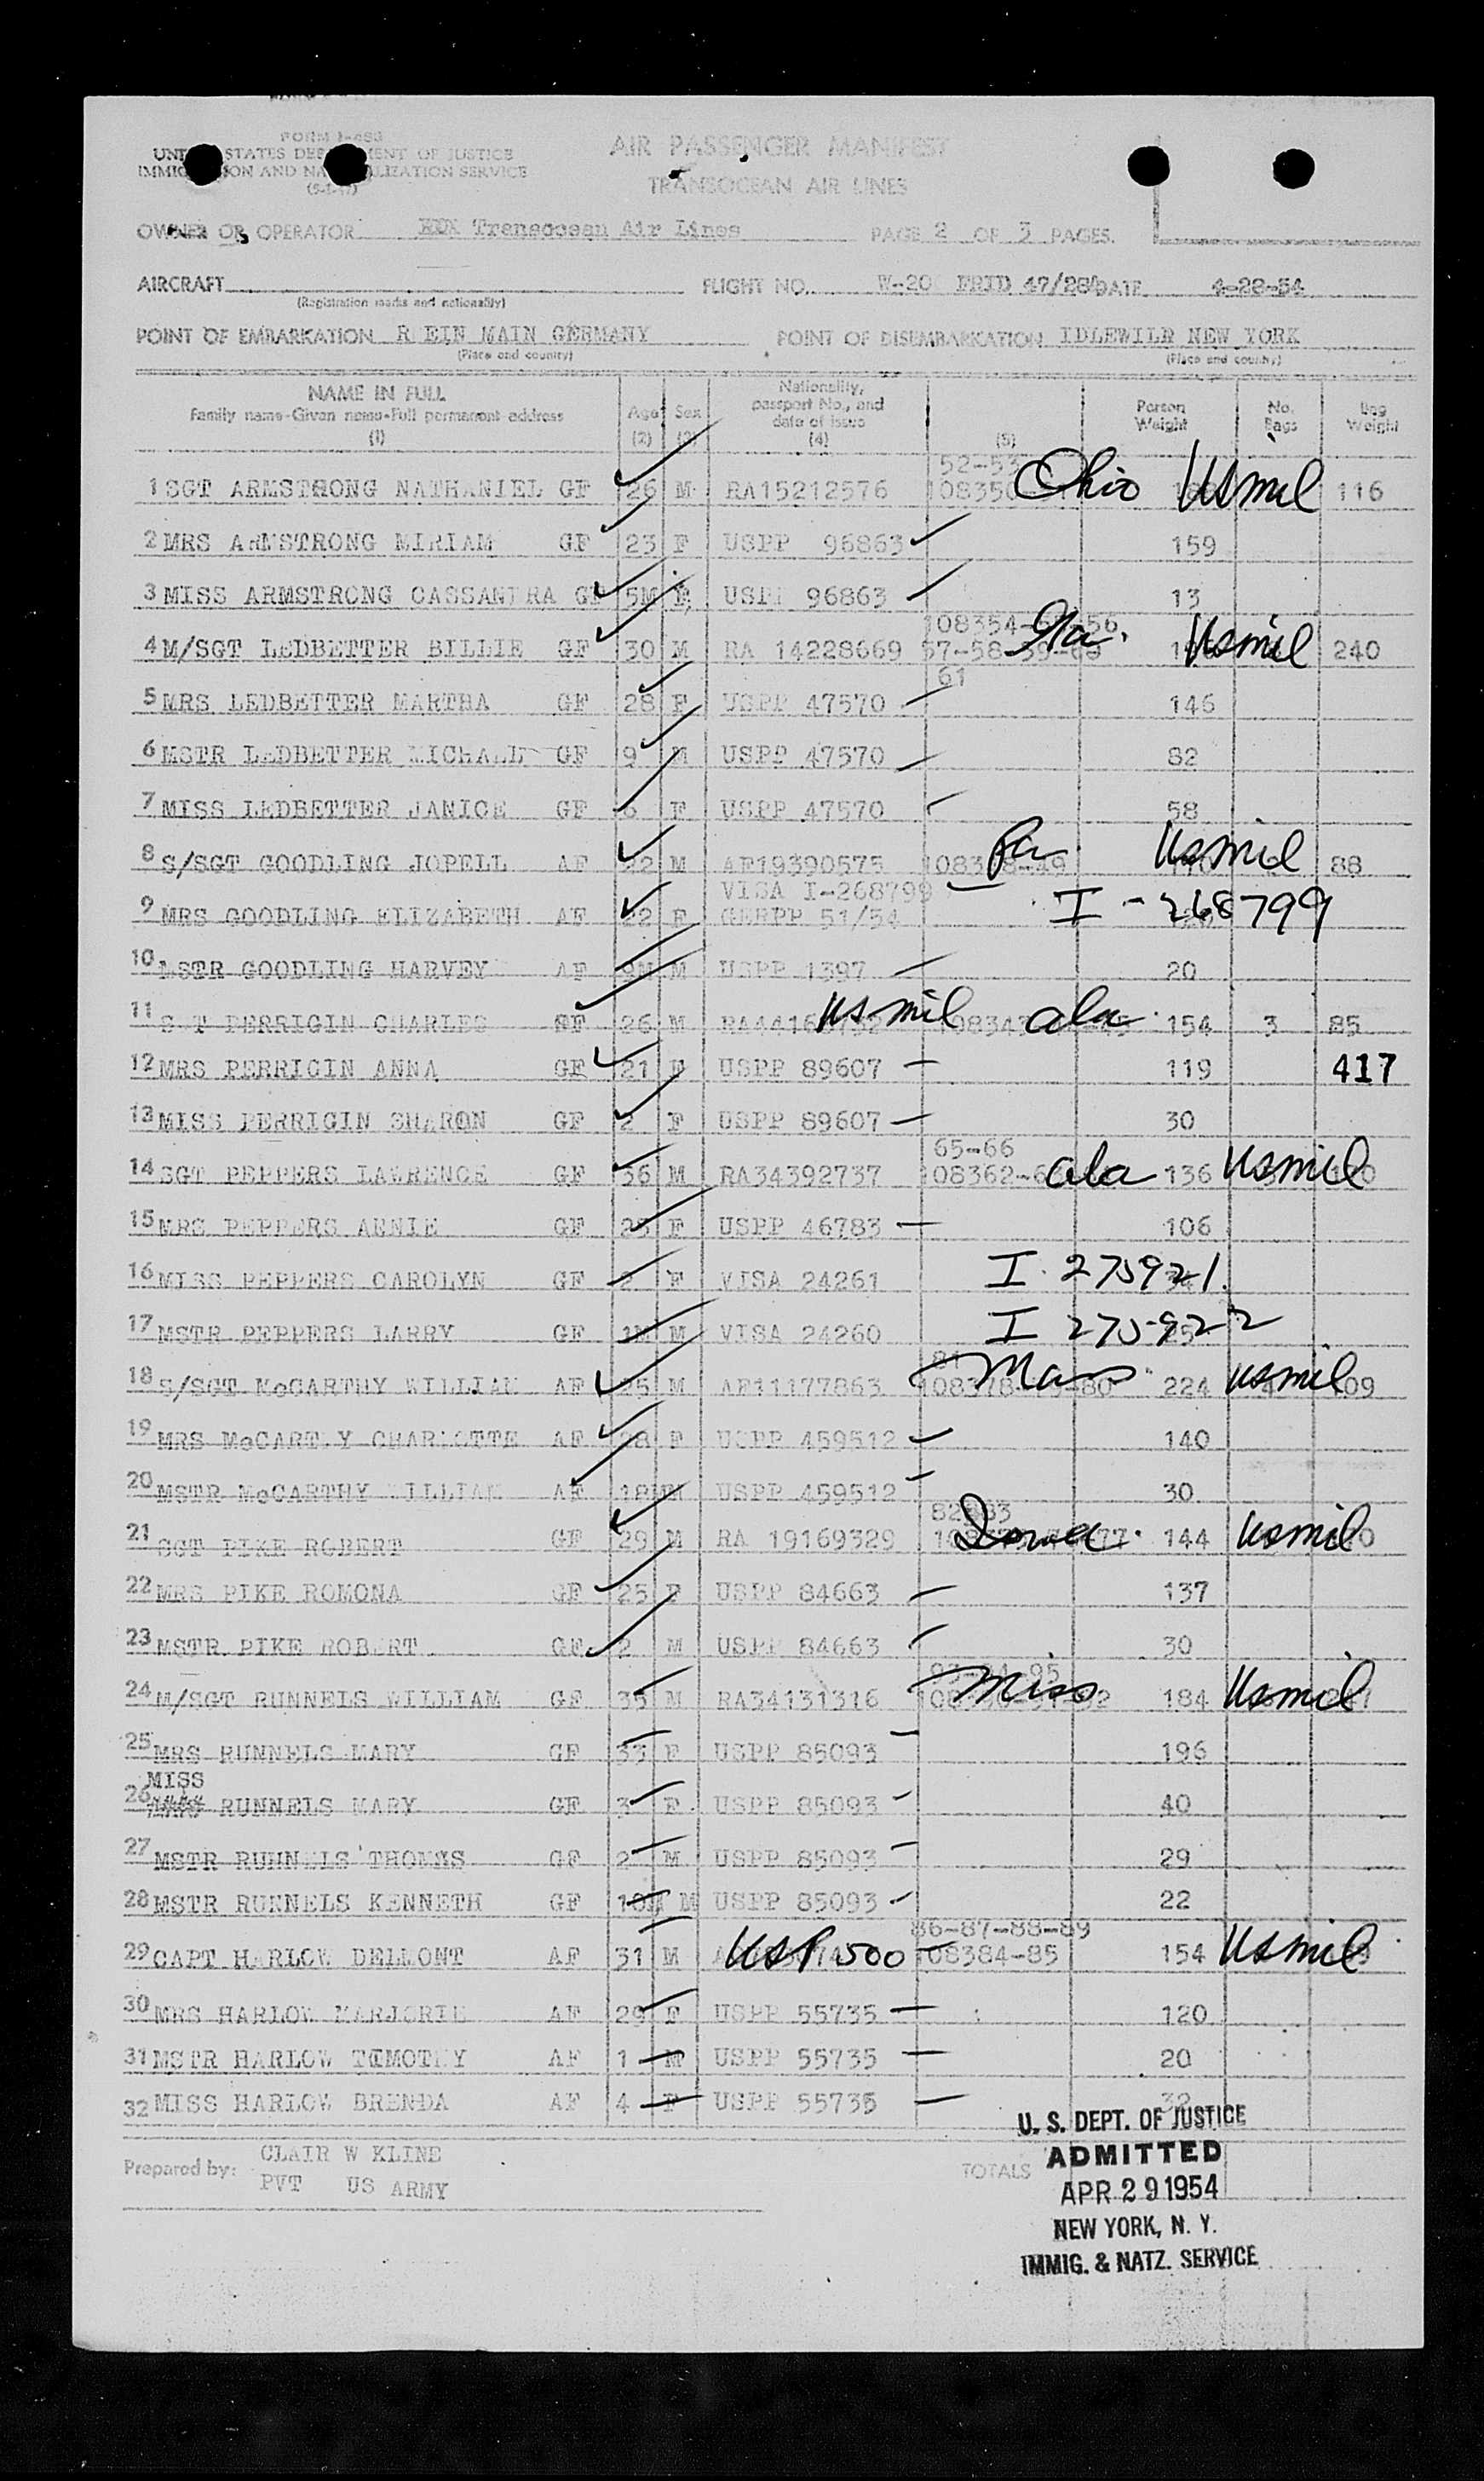 FORM I-483
UNITED STATES DEPARTMENT OF JUSTICE
IMMIGRATION AND NATURALIZATION SERVICE
AIR PASSENGER MANIFEST
TRANSOCEAN AIR LINES
OWNER OR OPERATOR Transocean Air Lines PAGE 2 OF 3 PAGES.
AIRCRAFT FLIGHT NO. W-20 FRTD 47/28 DATE 4-28-54
(Registration marks and nationality)
POINT OF EMBARKATION R EIN MAIN GERMANY POINT OF DISEMBARKATION IDLEWILR NEW YORK
(Place and country) (Place and country)
NAME IN FULL
Family name-Given name-Full permanent address
(1)
Age
(2)
Sex
(3)
Nationality,
passport No., and
date of issue
(4)
(5)
Person
Weight
No.
Bags
Bag
Weight
52-53
1 SGT ARMSTRONG NATHANIEL GF 26 M RA15212576 Ohio Usmil 116
2 MRS ARMSTRONG MIRIAM GF 23 F USPP 96863 159
3 MISS ARMSTRONG CASSANDRA GF 5M F USPP 96863 13
4 M/SGT LEDBETTER BILLIE GF 30 M RA 14228669 Usmil 240
61
5 MRS LEDBETTER MARTHA GF 28 F USPP 47570 146
6 MSTR LEDBETTER MICHAEL GF 9 M USPP 47570 82
7 MISS LEDBETTER JANICE GF 6 F USPP 47570 58
8 S/SGT GOODLING JOPELL AF 22 M AF19390575 Pa. Usmil 88
VISA I-268799
9 MRS GOODLING ELIZABETH AF 22 F GERPP 51/54 I-268799
10 MSTR GOODLING HARVEY AF 9M M USPP 1397 20
11 SGT PERRIGIN CHARLES GF 26 M Usmil ala. 154 3 85
12 MRS PERRIGIN ANNA GF 21 F USPP 89607 119 417
13 MISS PERRIGIN SHARON GF 2 F USPP 89607 30
65-66
14 SGT PEPPERS LAWRENCE GF 36 M RA34392737 ala 136 Usmil
15 MRS PEPPERS ANNIE GF 23 F USPP 46783 106
16 MISS PEPPERS CAROLYN GF 2 F VISA 24261 I. 275921
17 MSTR PEPPERS LARRY GF 1M M VISA 24260 I 275922
18 S/SGT McCARTHY WILLIAM AF 35 M AF11177863 Mass 224 Usmil
19 MRS McCARTHY CHARLOTTE AF 28 F USPP 459512 140
20 MSTR McCARTHY WILLIAM AF 18M M USPP 459512 30
21 SGT PIKE ROBERT GF 29 M RA 19169329 Iowa. 144 Usmil
22 MRS PIKE ROMONA GF 25 F USPP 84663 137
23 MSTR PIKE ROBERT GF 2 M USPP 84663 30
24 M/SGT RUNNELS WILLIAM GF 35 M RA34131316 Miss 184 Usmil
25 MRS RUNNELS MARY GF 33 F USPP 85093 196
MISS
26 RUNNELS MARY GF 3 F USPP 85093 40
27 MSTR RUNNELS THOMAS GF 2 M USPP 85093 29
28 MSTR RUNNELS KENNETH GF 10M M USPP 85093 22
86-87-88-89
29 CAPT HARLOW DELLONT AF 31 M USP 500 108384-85 154 Usmil
30 MRS HARLOW MARJORIE AF 29 F USPP 55735 120
31 MSTR HARLOW TIMOTHY AF 1 M USPP 55735 20
32 MISS HARLOW BRENDA AF 4 F USPP 55735 32
Prepared by: CLAIR W KLINE
PVT US ARMY
TOTALS
U. S. DEPT. OF JUSTICE
ADMITTED
APR 29 1954
NEW YORK, N. Y.
IMMIG. & NATZ. SERVICE